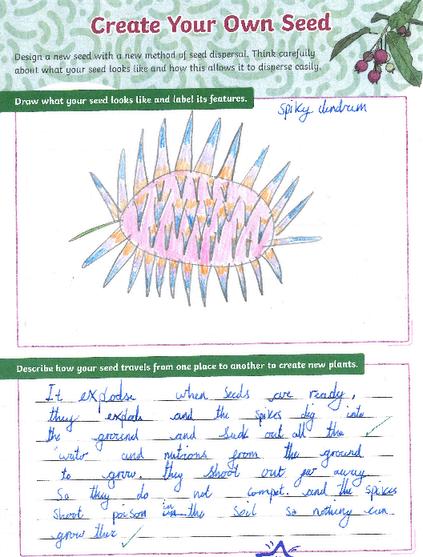 Create Your Own Seed
Design a new seed with a new method of seed dispersal. Think carefully
about what your seed looks like and how this allows it to disperse easily.
Draw what your seed looks like and label its features.
Spiky dundrum
Describe how your seed travels from one place to another to create new plants.
It explodse when seeds are ready,
they explode and the spikes dig into
the ground and suck out all the
water and nutrions from the ground
to grow. they shoot out far away
So they do not compet. and the spikes
shoot poison in the Soil so nothing can
grow thier